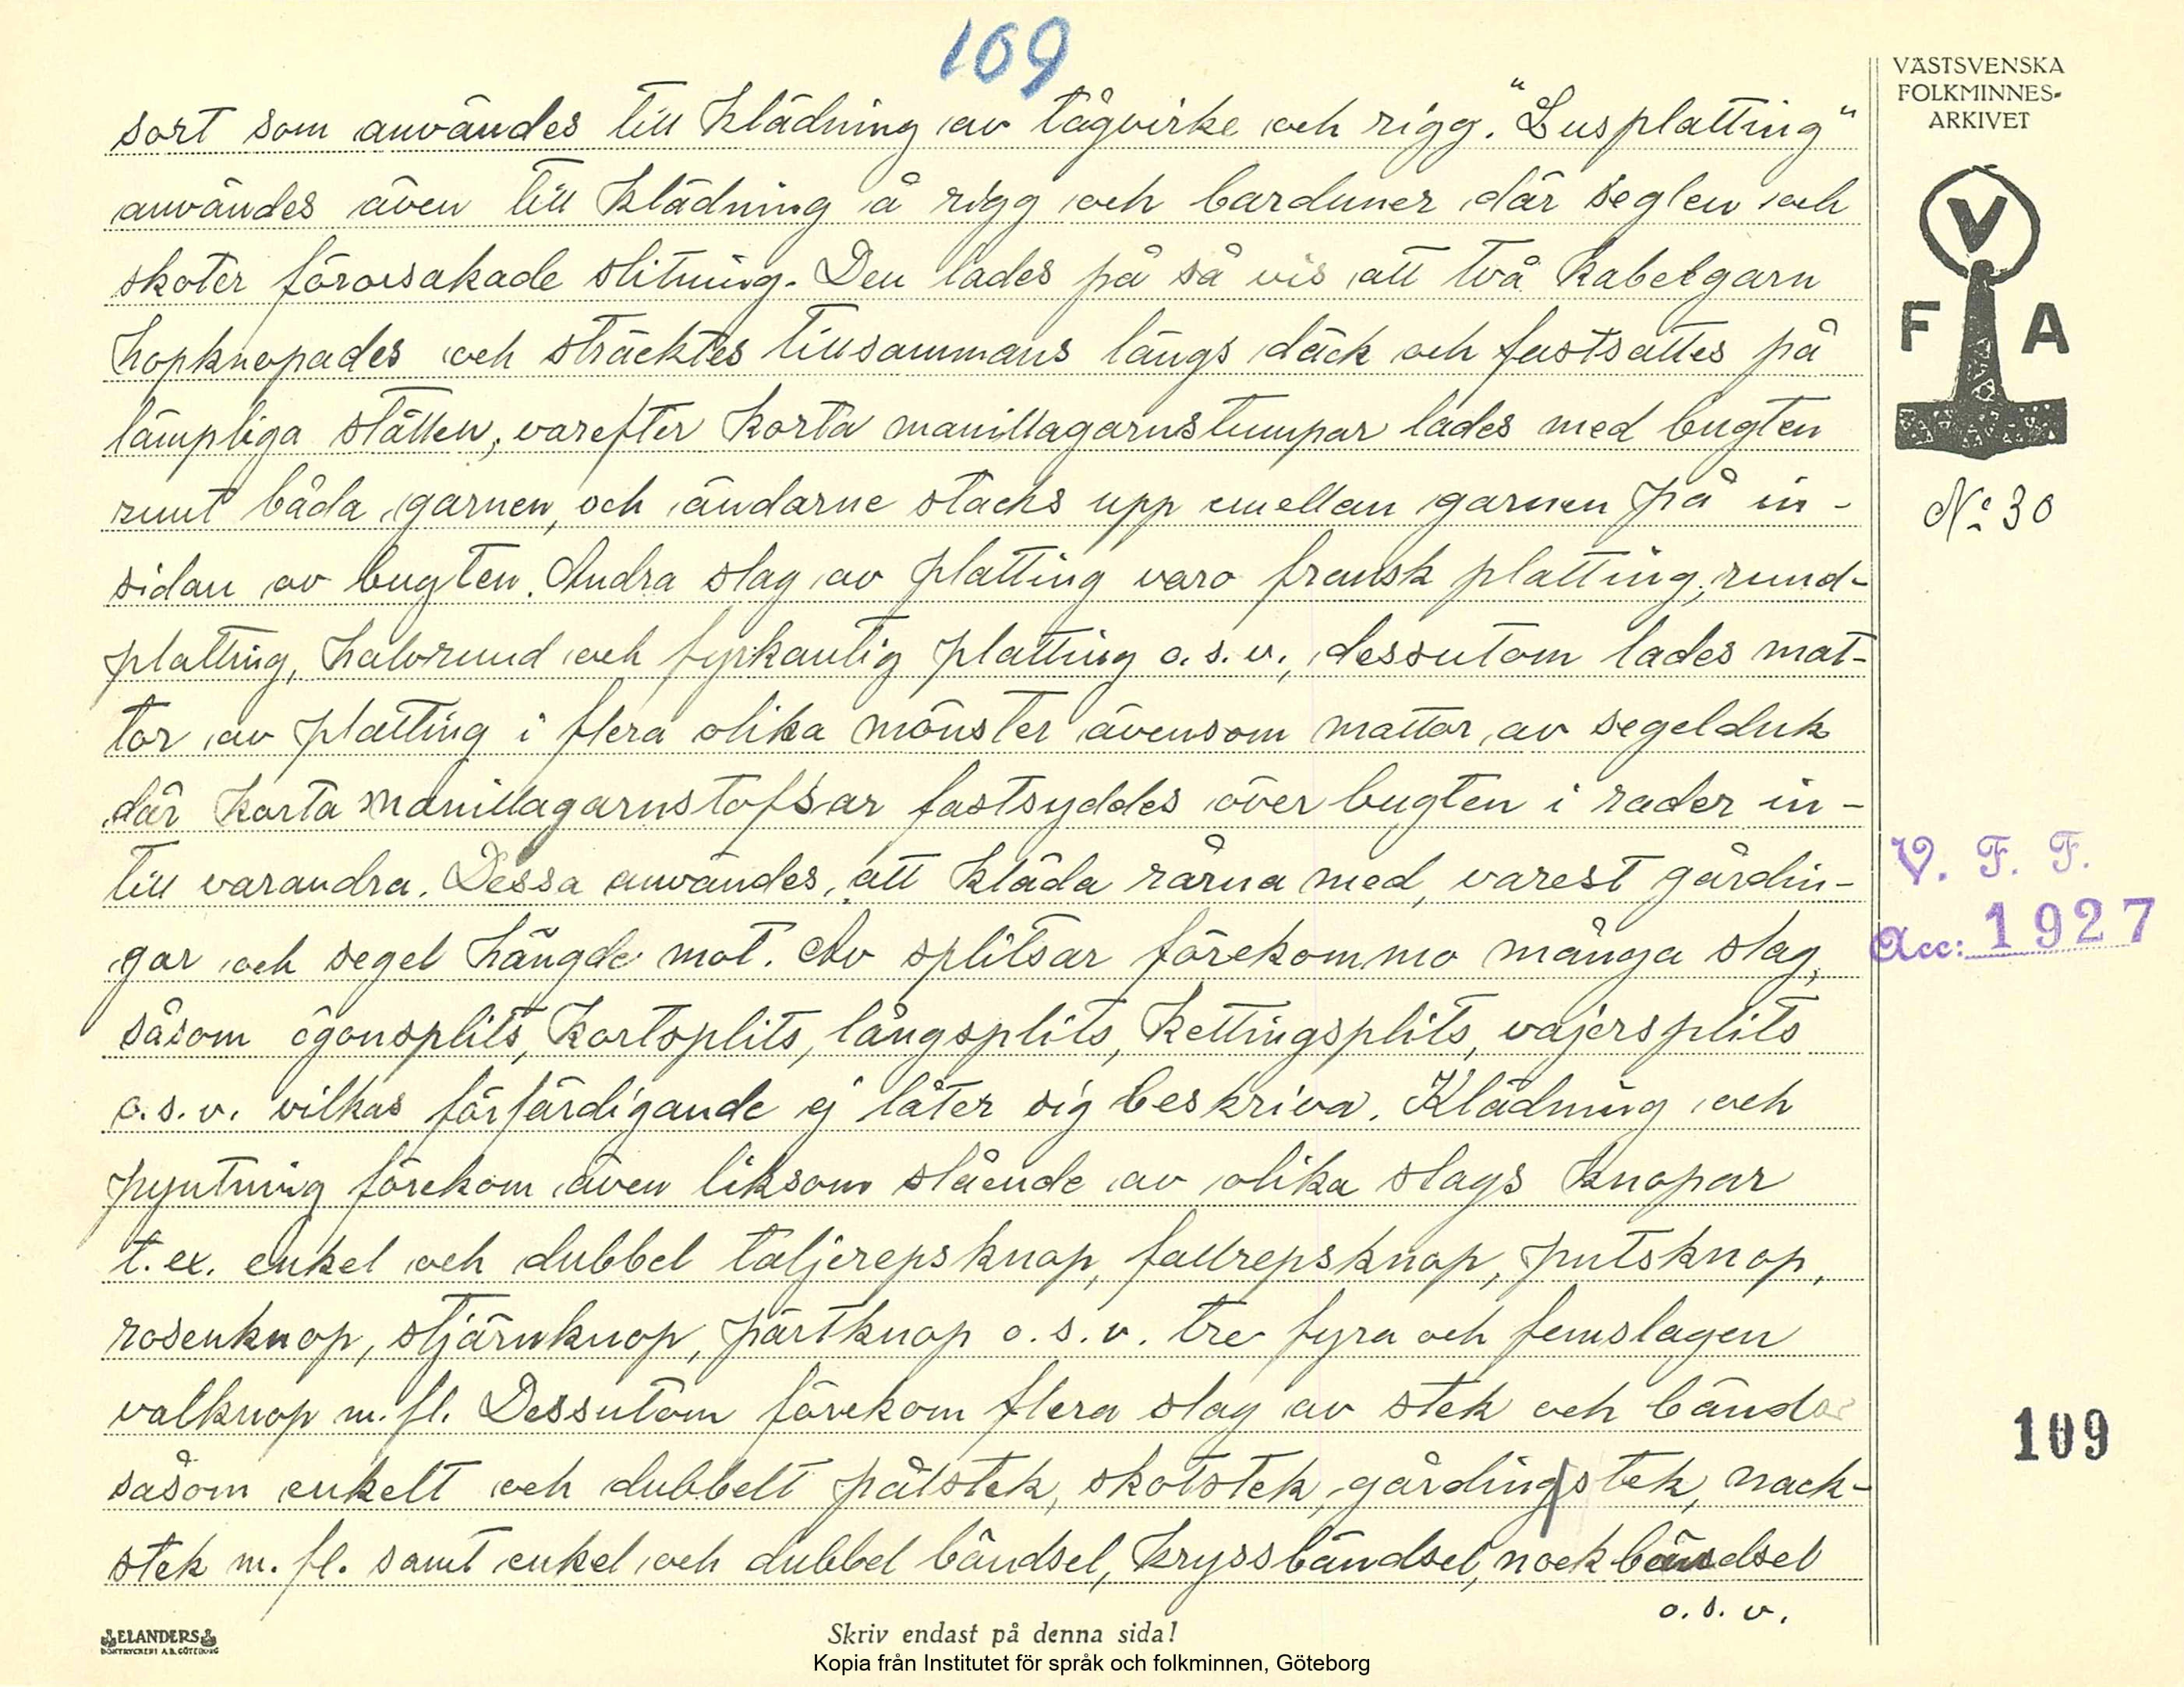 109
VÄSTSVENSKA
FOLKMINNES-
ARKIVET
V
F A
No 30
sort som användes till klädning av tågvirke och rigg. "Lusplatting"
användes även till klädning å rigg och barduner där seglen och
skoter förorsakade slitning. Den lades på så vis att två kabelgarn
hopknopades och sträcktes tillsammans längs däck och fastsattes på
lämpliga ställen, varefter korta manillagarnstumpar lades med bugten
runt båda garnen, och ändarne stacks upp emellan garnen på in-
sidan av bugten. Andra slag av platting varo fransk platting, rund-
platting, halvrund och fyrkantig platting o.s.v., dessutom lades mat-
tor av platting i flera olika mönster ävensom mattor av segelduk
där korta manillagarnstofsar fastsyddes över bugten i rader in-
till varandra. Dessa användes, att kläda rårna med, varest gårdin-
gar och segel hängde mot. Av splitsar förekommo många slag,
såsom ögonsplits, kortsplits, långsplits, kettingsplits, vajersplits
o.s.v. vilkas förfärdigande ej låter sig beskriva. Klädning och
pyntning förekom även liksom slående av olika slags knopar
t.ex. enkel och dubbel taljerepsknop, fallrepsknop, putsknop,
rosenknop, stjärnknop, pärtknop o.s.v. tre fyra och femslagen
valknop m.fl. Dessutom förekom flera slag av stek och bändar
såsom enkelt och dubbelt pålstek, skotstek, gårdingstek, nack-
stek m.fl. samt enkel och dubbel bändsel, kryssbändsel, nockbändsel
o.s.v.
V. F. F.
Acc: 1927
109
ELANDERS
BOKTRYCKERI A.B. GÖTEBORG
Skriv endast på denna sida!
Kopia från Institutet för språk och folkminnen, Göteborg